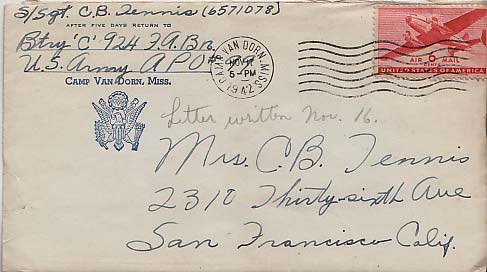 S/Sgt. C.B. Tennis (6571078)
AFTER FIVE DAYS RETURN TO
Btry 'C' 924 F.A.Bn.
U.S. Army APO
CAMP VAN DORN, MISS.
CAMP VAN DORN, MISS.
NOV 17
6-PM
1942
AIR 6 MAIL
CENTS
UNITED STATES OF AMERICA
Letter written Nov. 16.
Mrs. C.B. Tennis
2310 Thirty-sixth Ave
San Francisco Calif.